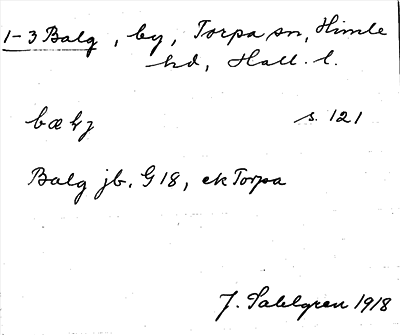 1-3 Balg, by, Torpa sn, Himle
hd, Hall. l.
s. 121
Balg jb. G 18, ek Torpa
J. Sahlgren 1918